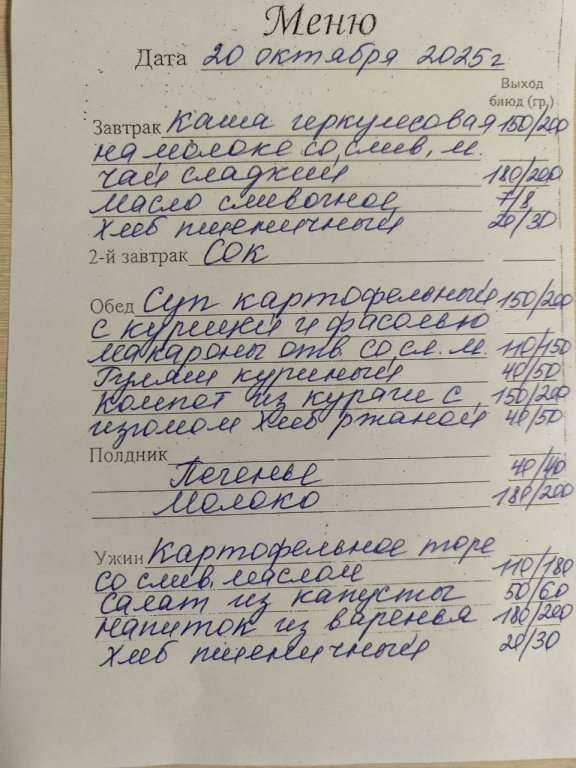 Меню
Дата 20 октября 2025г
Выход
блюд (гр.)
Завтрак Каша геркулесовая 150/200
на молоке со слив. м.
чай сладкий 180/200
масло сливочное 7/8
хлеб пшеничный 20/30
2-й завтрак сок
Обед Суп картофельный 150/200
с курицей и фасолью
макароны отв. со сл. м. 110/150
Гуляш куриный 40/50
компот из кураги с 150/200
изюмом хлеб ржаной 40/50
Полдник
Печенье 40/40
Молоко 180/200
Ужин Картофельное пюре
со слив. маслом 110/180
салат из капусты 50/60
напиток из варенья 180/200
хлеб пшеничный 20/30